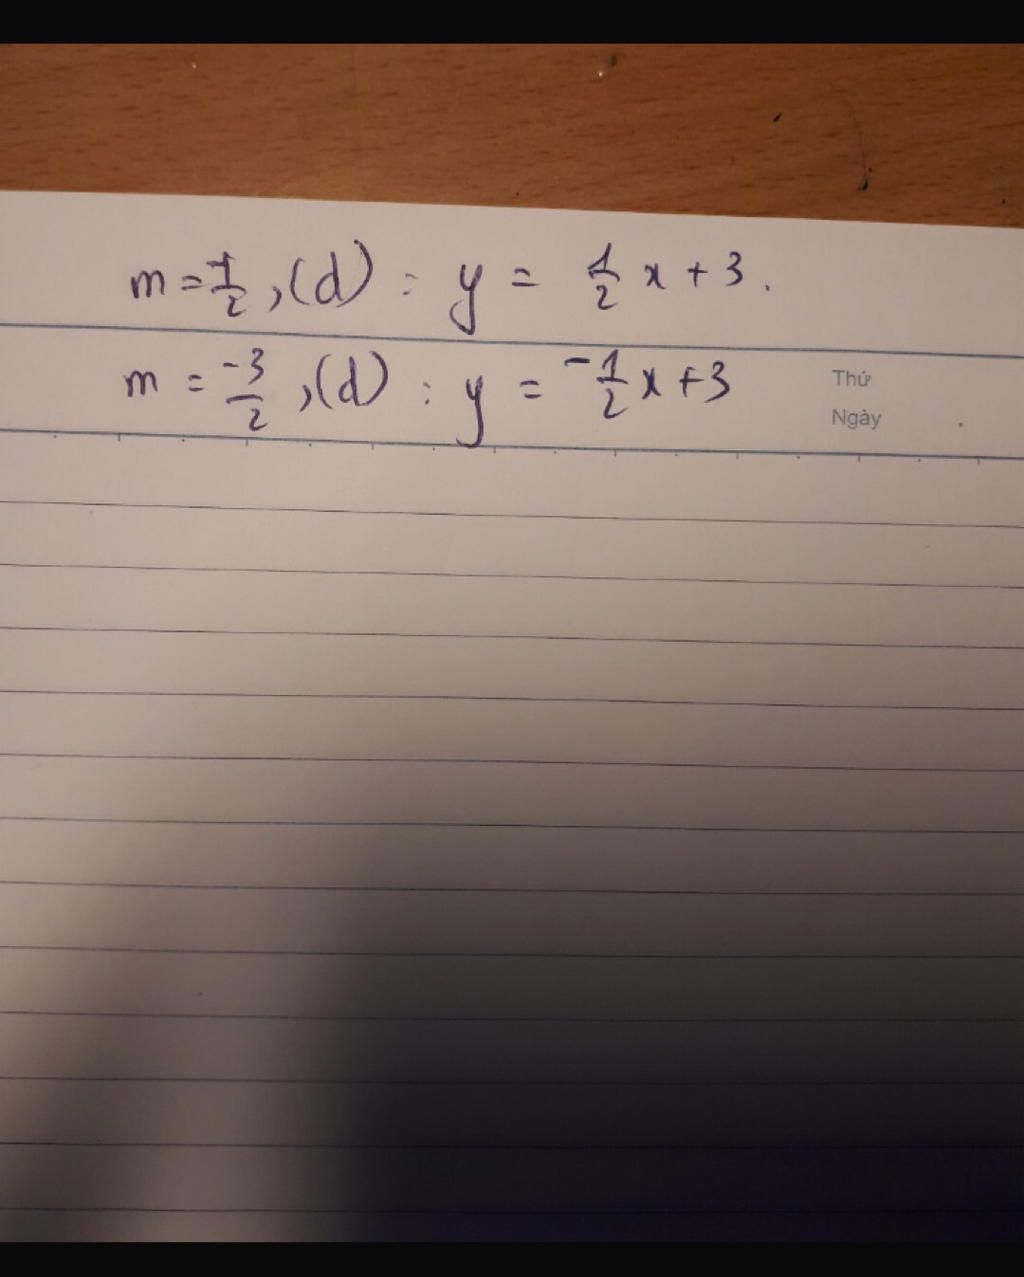 m = -1/2, (d) : y = 1/2 x + 3.
m = -3/2, (d) : y = -1/2 x + 3
Thứ
Ngày